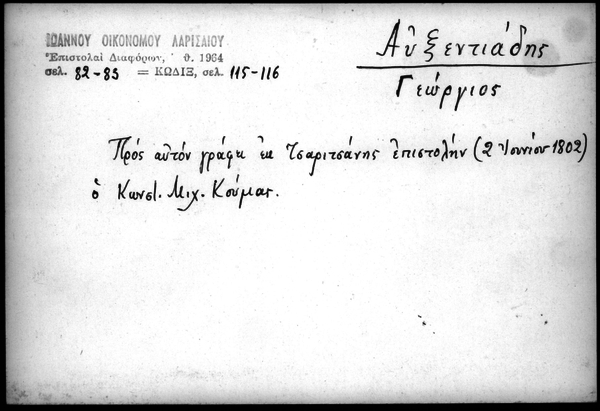 ΙΩΑΝΝΟΥ ΟΙΚΟΝΟΜΟΥ ΛΑΡΙΣΑΙΟΥ
Ἐπιστολαὶ Διαφόρων, θ. 1964
σελ. 82-83 = ΚΩΔΙΞ, σελ. 115-116
Αὐξεντιάδης
Γεώργιος
Πρός αὐτόν γράφει ἐκ Τσαριτσάνης ἐπιστολήν (2 Ἰουνίου 1802)
ὁ Κωνστ. Μιχ. Κούμας.